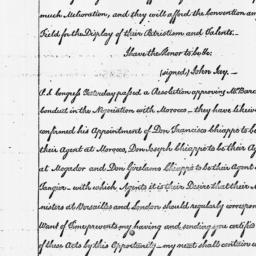 much Melioration, and they will afford the Convention an
Field for the Display of their Patriotism and Talents.
I have the Honor to be &c.
(signed) John Jay.
P.S. Congress Yesterday passed a Resolution approving Mr Barc
Conduct in the Negociation with Morocco, they have likewi
confirmed his Appointment of Don Francisco Chiappe to b
their Agent at Morocco, Don Joseph Chiappe to be their Ag
at Mogador and Don Girolamo Chiappe to be their Agent
Tangier. with which Agents it is their Desire that their M
nisters at Versailles and London should regularly correspon
Want of Time prevents my having and sending you certified
of these Acts by this Opportunity my next shall contain